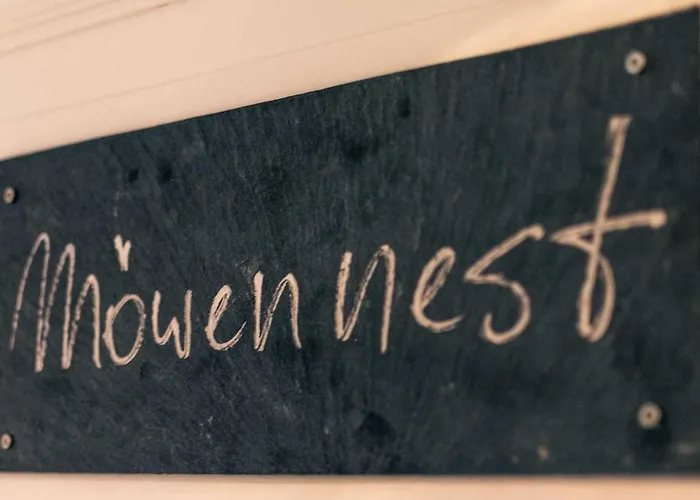 Möwennest